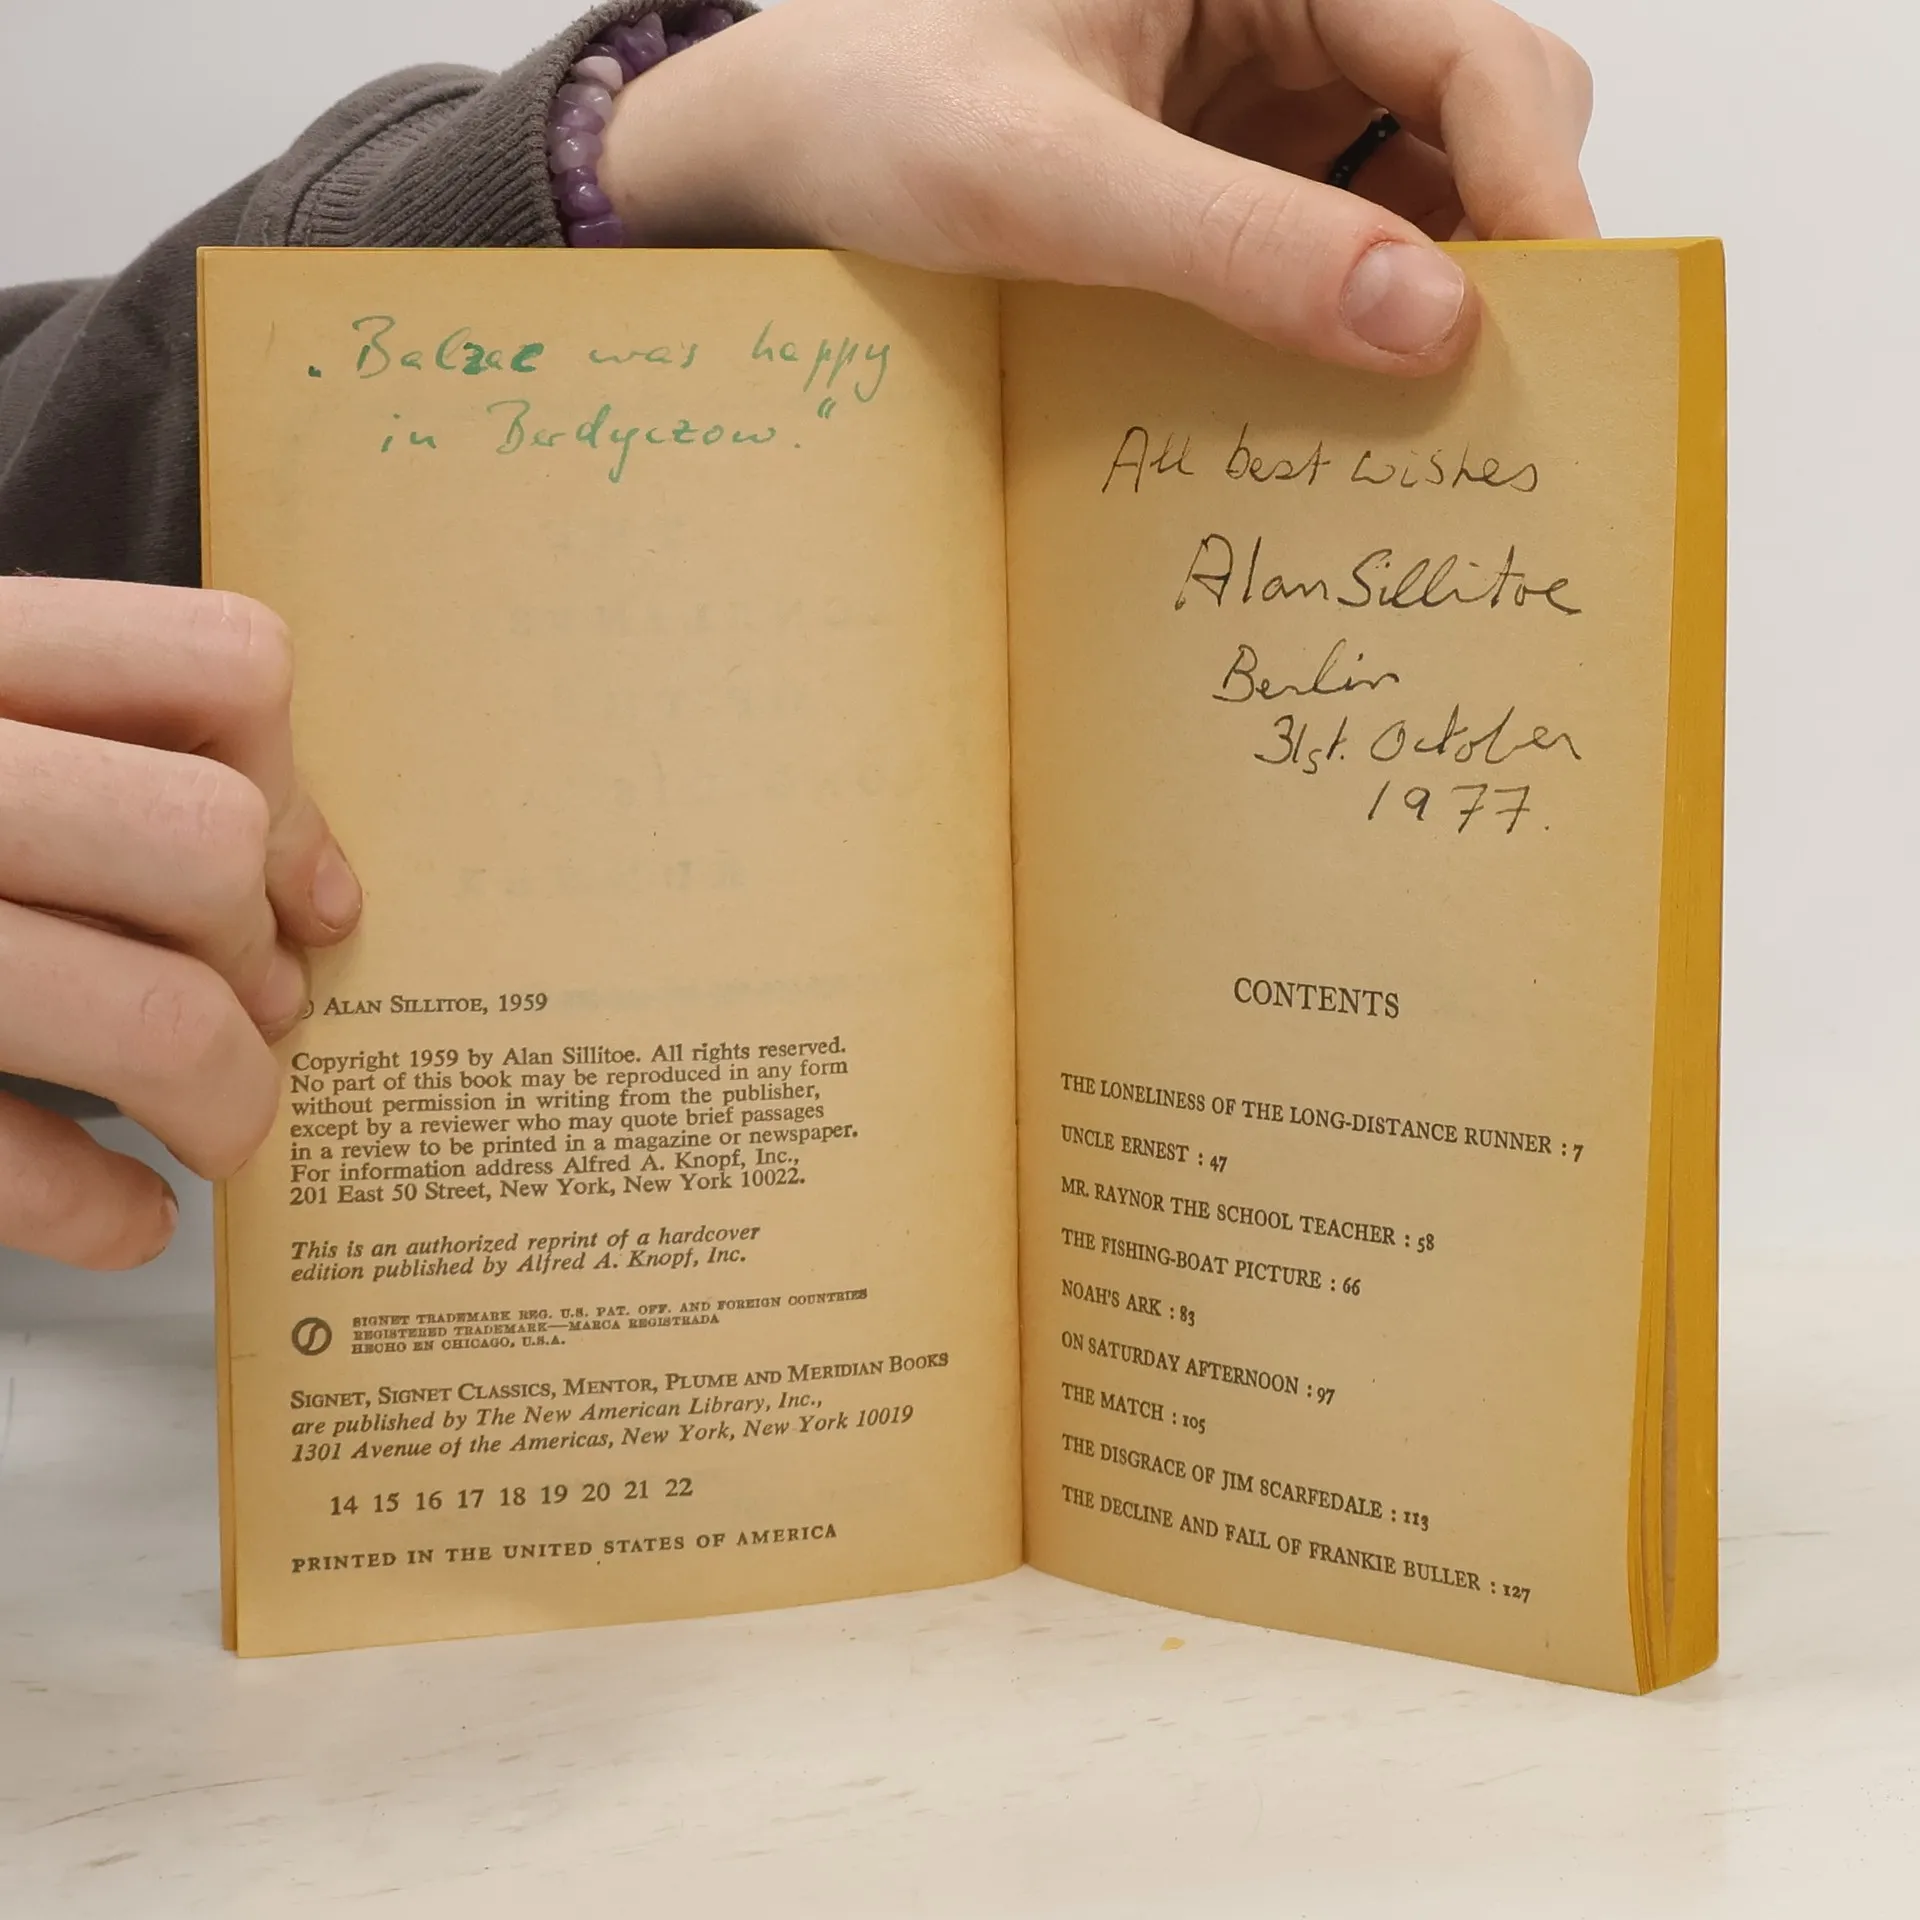 „Balzac was happy
in Berdyczow.“
© ALAN SILLITOE, 1959
Copyright 1959 by Alan Sillitoe. All rights reserved.
No part of this book may be reproduced in any form
without permission in writing from the publisher,
except by a reviewer who may quote brief passages
in a review to be printed in a magazine or newspaper.
For information address Alfred A. Knopf, Inc.,
201 East 50 Street, New York, New York 10022.
This is an authorized reprint of a hardcover
edition published by Alfred A. Knopf, Inc.
SIGNET TRADEMARK REG. U.S. PAT. OFF. AND FOREIGN COUNTRIES
REGISTERED TRADEMARK—MARCA REGISTRADA
HECHO EN CHICAGO, U.S.A.
SIGNET, SIGNET CLASSICS, MENTOR, PLUME AND MERIDIAN BOOKS
are published by The New American Library, Inc.,
1301 Avenue of the Americas, New York, New York 10019
14 15 16 17 18 19 20 21 22
PRINTED IN THE UNITED STATES OF AMERICA
All best wishes
Alan Sillitoe
Berlin
31st. October
1977.
CONTENTS
THE LONELINESS OF THE LONG-DISTANCE RUNNER : 7
UNCLE ERNEST : 47
MR. RAYNOR THE SCHOOL TEACHER : 58
THE FISHING-BOAT PICTURE : 66
NOAH'S ARK : 83
ON SATURDAY AFTERNOON : 97
THE MATCH : 105
THE DISGRACE OF JIM SCARFEDALE : 113
THE DECLINE AND FALL OF FRANKIE BULLER : 127